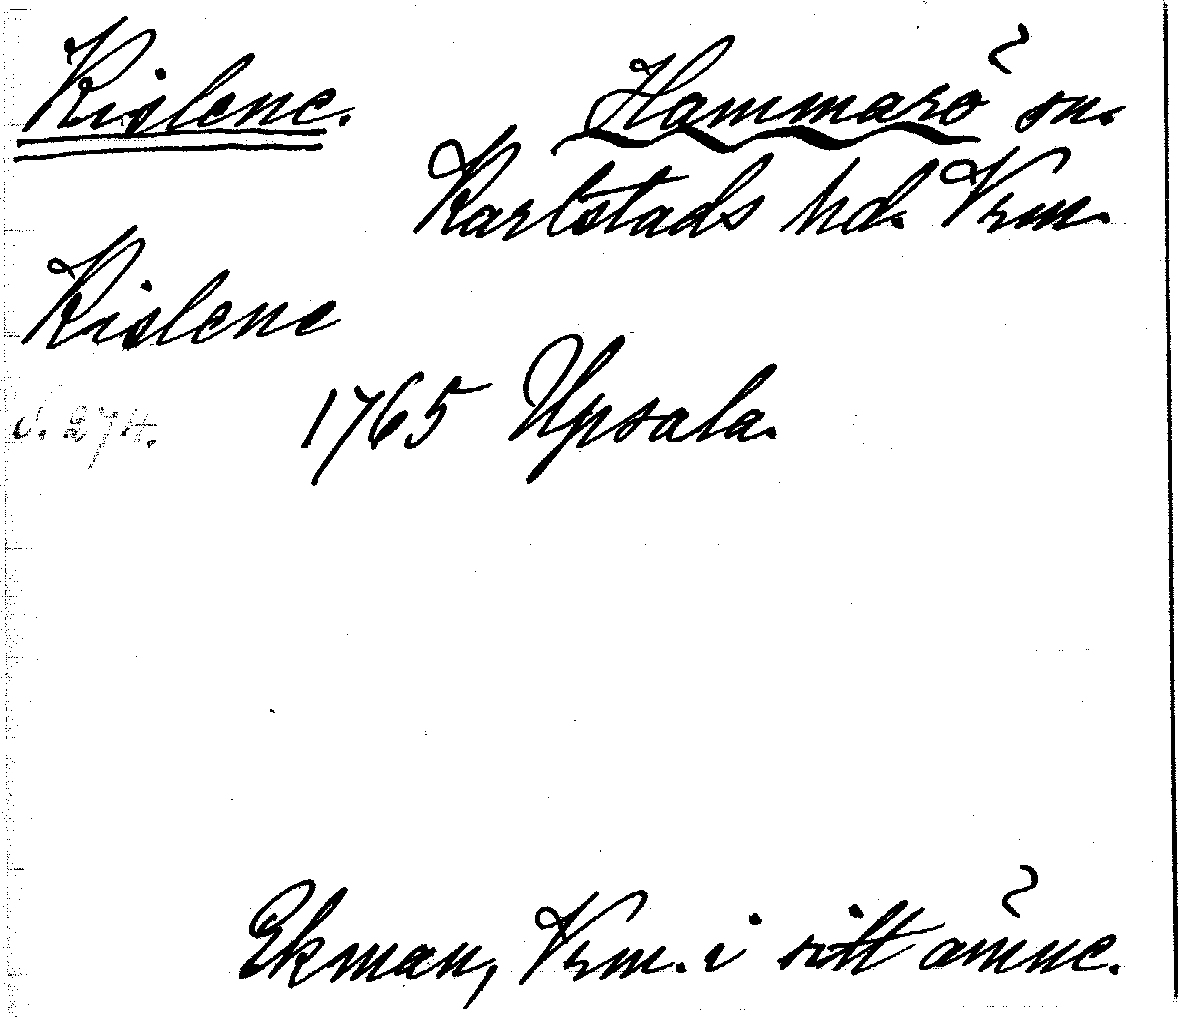 Kislene. Hammarö sn.
Karlstads hd. Vrm.
Kislene
s. 274. 1765 Upsala.
Ekman, Vrm. i sitt ämne.